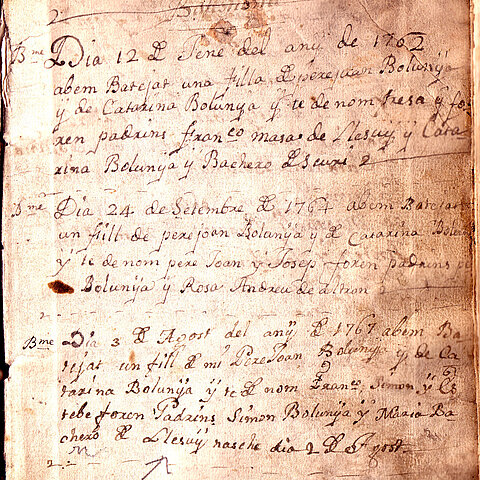 Bme Dia 12 de Jene del any de 1762
abem Batejat una filla de perejoan Bolunÿa
ÿ de Catarina Bolunÿa ÿ te de nom tresa ÿ fo
ren padrins franco masa de Llesuÿ ÿ Cata
rina Bolunÿa ÿ Bachero de
Bme Dia 24 de Setembre de 1764 abem Batejat
un fill de perejoan Bolunÿa ÿ de Catarina
ÿ te de nom pere Joan ÿ Josep foren padrins
Bolunÿa ÿ Rosa Andreu de
Bme Dia 3 de Agost del anÿ de 1767 abem Ba
tejat un fill de mi PereJoan Bolunÿa ÿ de Ca
tarina Bolunÿa ÿ te de nom Franco, Simon ÿ Es
tebe foren Padrins Simon Bolunÿa ÿ Maria Ba
chero de Llesuÿ nasche dia 2 de Agost